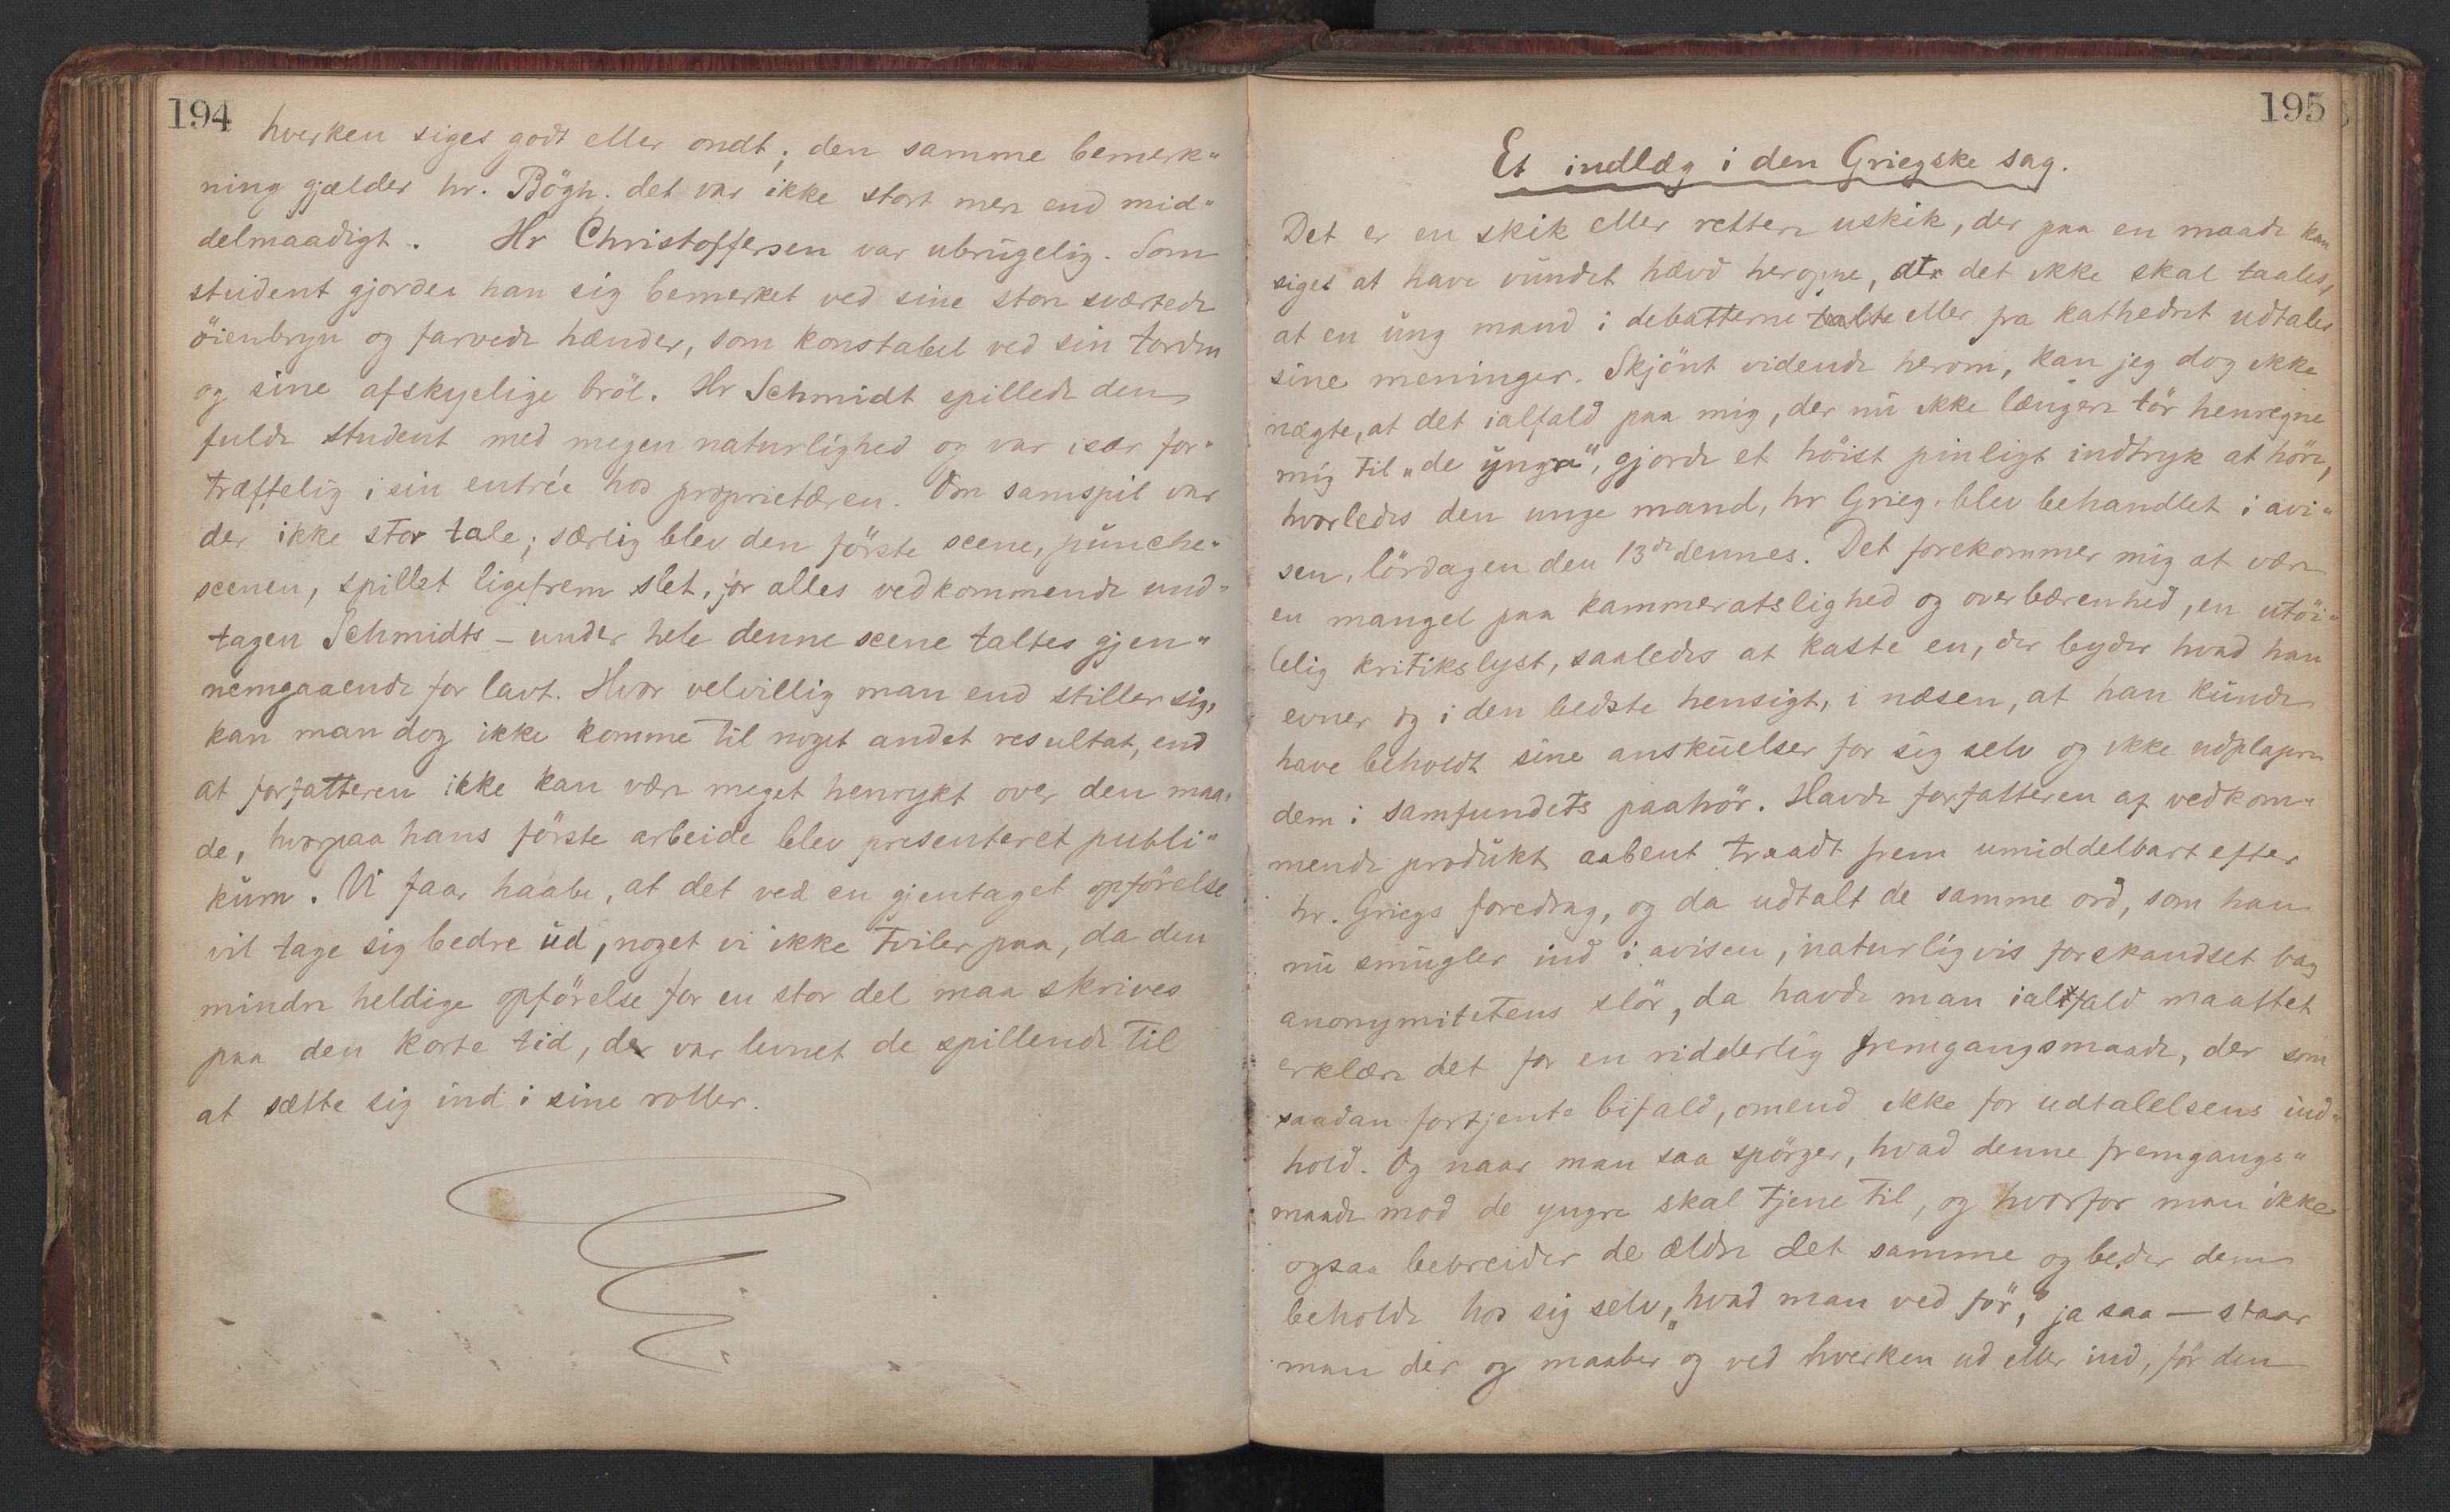 194
hverken siges godt eller ondt; den samme bemerk-
ning gjælder hr. Bögh. det var ikke stort mere end mid-
delmaadigt. Hr Christoffersen var ubrugelig. Som
student gjorde han sig bemerket ved sine store sværtede
öienbryn og farvede hænder, som konstabel ved sin torden
og sine afskyelige bröl. Hr Schmidt spillede den
fulde student med megen naturlighed og var især for-
træffelig i sin entrée hos proprietæren. Om samspil var
der ikke stor tale; særlig blev den förste scene, punche-
scenen, spillet ligefrem slet, for alles vedkommende und-
tagen Schmidts – under hele denne scene taltes gjen-
nemgaaende for lavt. Hvor velvillig man end stiller sig,
kan man dog ikke komme til noget andet resultat, end
at forfatteren ikke kan være meget henrykt over den maa-
de, hvorpaa hans förste arbeide blev presenteret publi-
kum. Vi faar haabe, at det ved en gjentaget opförelse
vil tage sig bedre ud, noget vi ikke tviler paa, da den
mindre heldige opförelse for en stor del maa skrives
paa den korte tid, der var levnet de spillende til
at sætte sig ind i sine roller.
195
Et indlæg i den Griegske sag.
Det er en skik eller rettere uskik, der paa en maade kan
siges at have vundet hævd heroppe, at det ikke skal taales,
at en ung mand i debatterne eller fra kathedret udtaler
sine meninger. Skjönt vidende herom, kan jeg dog ikke
nægte, at det ialfald paa mig, der nu ikke længere tör henregne
mig til „de yngre“, gjorde et höist pinligt indtryk at höre,
hvorledes den unge mand, hr Grieg, blev behandlet i avi-
sen, lördagen den 13de dennes. Det forekommer mig at være
en mangel paa kammeratslighed og overbærenhed, en utöi-
lelig kritikslyst, saaledes at kaste en, der byder hvad han
evner og i den bedste hensigt, i næsen, at han kunde
have beholdt sine anskuelser for sig selv og ikke udplapre
dem i samfundets paahör. Havde forfatteren af vedkom-
mende produkt aabent traadt frem umiddelbart efter
hr. Griegs foredrag, og da udtalt de samme ord, som han
nu smugler ind i avisen, naturligvis forskandset bag
anonymitetens slör, da havde man ialfald maattet
erklære det for en ridderlig fremgangsmaade, der som
saadan fortjente bifald, omend ikke for udtalelsens ind-
hold. Og naar man saa spörger, hvad denne fremgangs-
maade mod de yngre skal tjene til, og hvorfor man ikke
ogsaa bebreider de ældre det samme og beder dem
beholde hos sig selv, „hvad man ved för,“ ja saa — staar
man der og maaber og ved hverken ud eller ind, för den